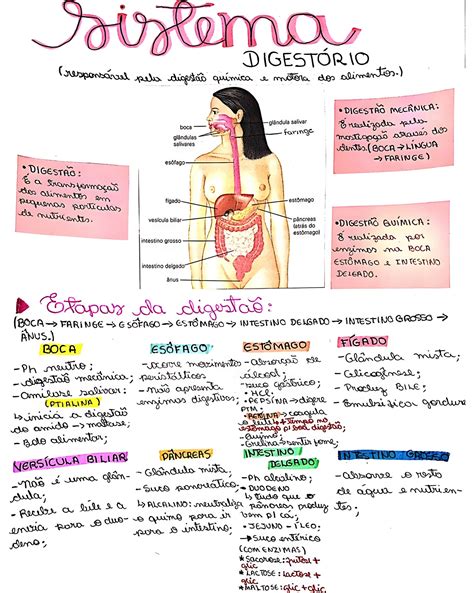 Sistema
DIGESTÓRIO
(responsável pela digestão química e motora dos alimentos.)
• DIGESTÃO:
É a transformação
dos alimentos em
pequenas partículas
de nutrientes.
boca
glândulas
salivares
esôfago
fígado
vesícula biliar
intestino grosso
intestino delgado
ânus
glândula salivar
faringe
estômago
pâncreas
(atrás do
estômago)
• DIGESTÃO MECÂNICA:
É realizada pela
mastigação através dos
dentes. (BOCA → LÍNGUA
→ FARINGE)
• DIGESTÃO QUÍMICA:
É realizada por
enzimas na BOCA
ESTÔMAGO e INTESTINO
DELGADO.
Etapas da digestão:
(BOCA → FARINGE → ESÔFAGO → ESTÔMAGO → INTESTINO DELGADO → INTESTINO GROSSO →
ÂNUS.)
BOCA
- Ph neutro;
- digestão mecânica;
- Amilase salivar:
(PTIALINA)
↳ inicia a digestão
do amido → maltose;
- Bolo alimentar;
ESÔFAGO
- ocorre movimento
peristálticos
- não apresenta
enzimas digestivas;
ESTÔMAGO
- absorção de
álcool;
- suco gástrico;
• HCL;
• PEPSINA → digere
PTN.
• RENINA → coagula
o leite → + tempo no
estômago p/ sua digestão;
- Quimo;
- Grelina → sentir fome;
FÍGADO
- Glândula mista;
- Glicogênese;
- Produz BILE;
- Emulsificar gordura
VERSÍCULA BILIAR
- Não é uma glân-
dula;
- Recebe a bile e a
envia para o duo-
deno;
PÂNCREAS
- Glândula mista;
- Suco pancreático;
↳ ALCALINO: neutraliza
o quimo para ir
para o intestino;
INTESTINO
DELGADO
- Ph alcalino;
- DUODENO
↳ tudo que o
pâncreas produz
vem p/ cá;
- JEJUNO - ÍLEO;
→ suco entérico
(COM ENZIMAS)
* Sacarose: frutose +
glic
* LACTOSE: lactose +
glic
* MALTOSE: glic + glic
INTESTINO GROSSO
- Absorve o resto
de água e nutrien-
tes;